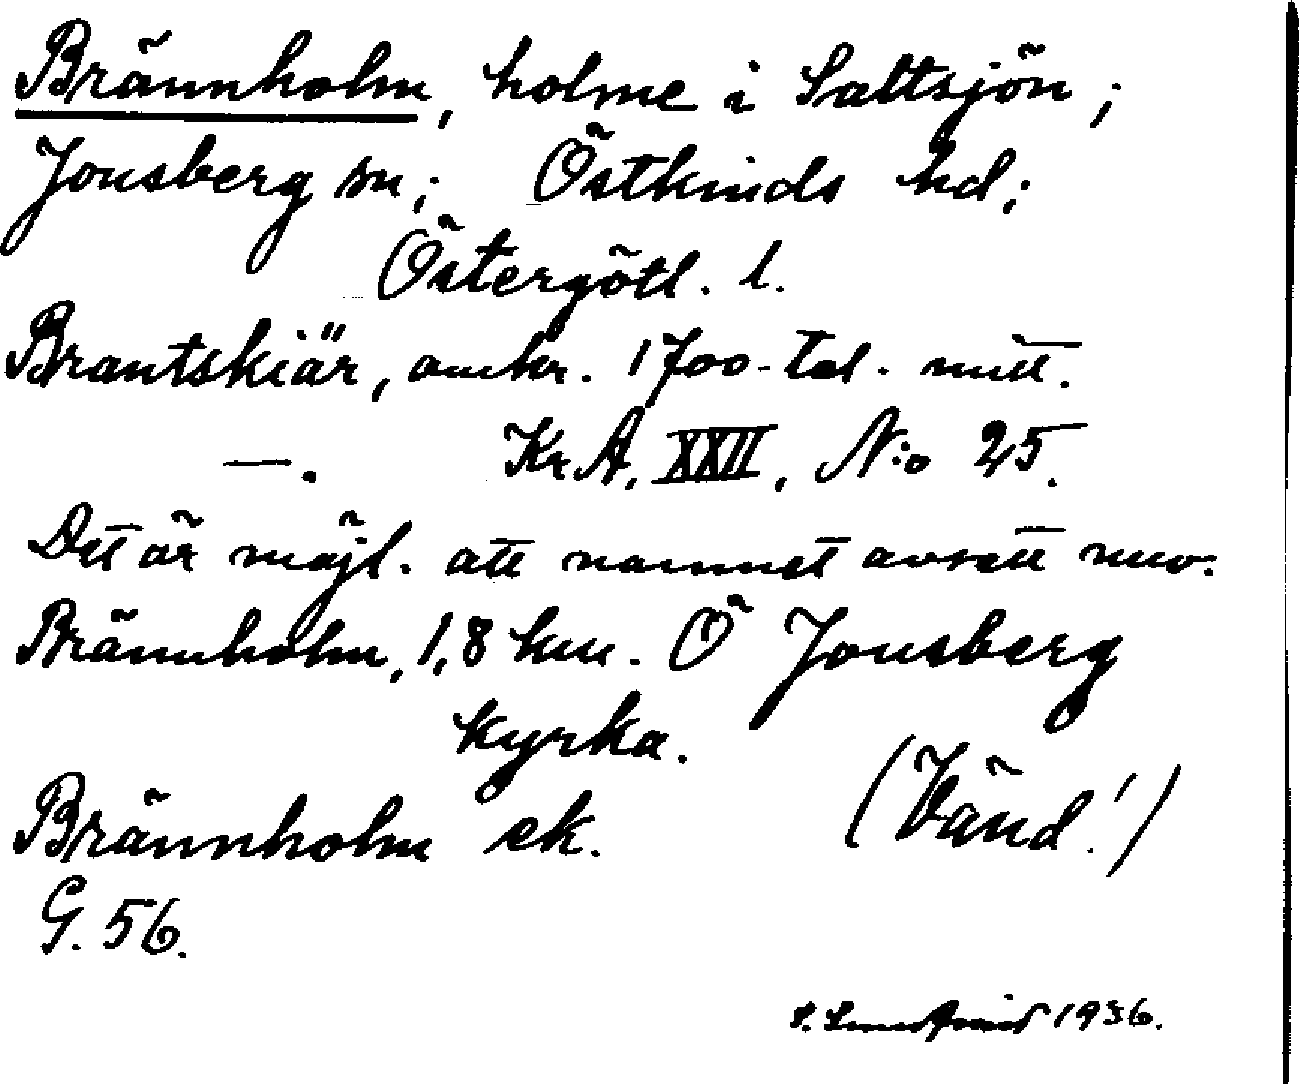 Brännholm, holme i Saltsjön;
Jonsberg sn; Östkinds hd;
Östergötl. l.
Brantskiär, omkr. 1700-tal. mitt.
—. Kr.A. XXII, N:o 25.
Det är möjl. att namnet avsett nuv.
Brännholm, 1,8 km. Ö Jonsberg
kyrka.
Brännholm ek. (Vänd!)
G. 56.
1936.